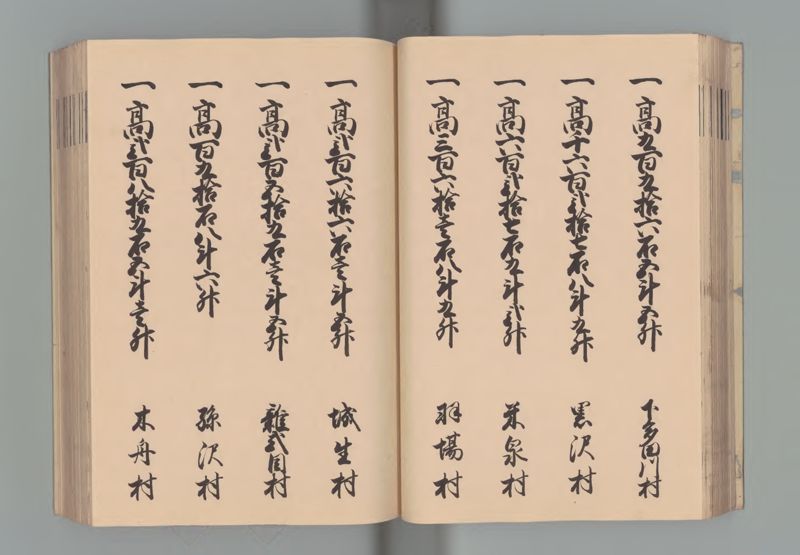 一高五百五拾六石五斗五升 下多田川村
一高千六百弐拾七石八斗九升 黒沢村
一高六百弐拾七石九斗弐升 米泉村
一高三百六拾壱石八斗九升 羽場村
一高弐百六拾六石壱斗五升 城生村
一高弐百五拾九石壱斗五升 雑式目村
一高百九拾石八斗六升 孫沢村
一高弐百八拾九石五斗壱升 木舟村